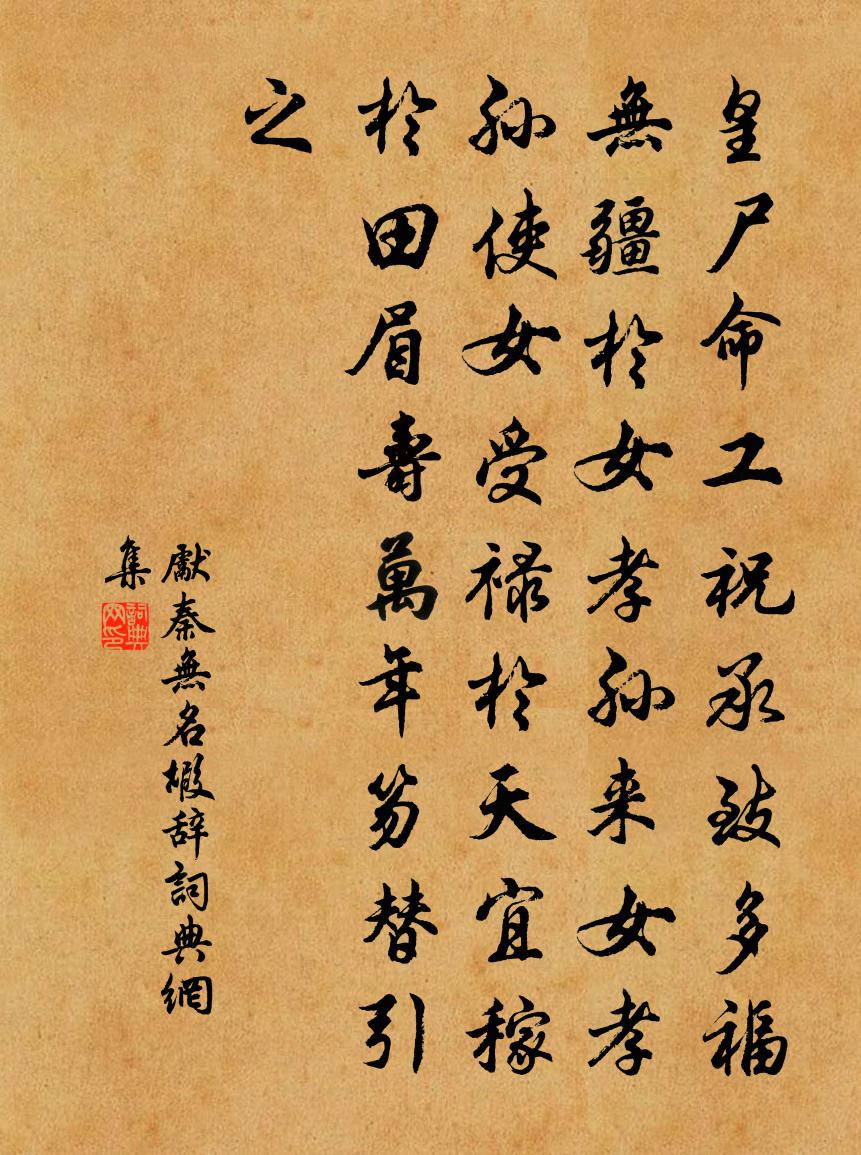 皇尸命工祝承致多福
無疆於女孝孫来女孝
孫使女受禄於天宜稼
於田眉壽萬年笏替引
之
獻秦無名椵辞詞典網
集
詞典网印